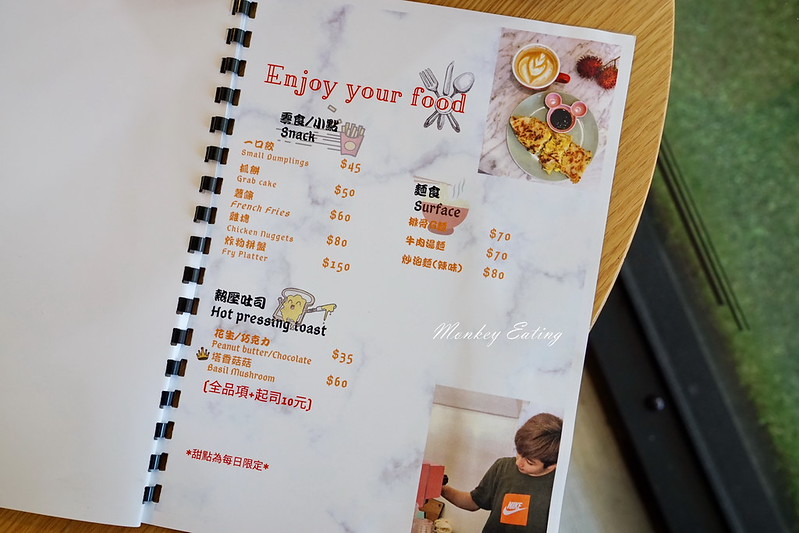 Enjoy your food
零食/小點
Snack
一口餃
Small Dumplings $45
抓餅
Grab cake $50
薯條
French Fries $60
雞塊
Chicken Nuggets $80
炸物拼盤
Fry Platter $150
熱壓吐司
Hot pressing toast
花生/巧克力 $35
Peanut butter/Chocolate
塔香菇菇 $60
Basil Mushroom
(全品項+起司10元)
*甜點為每日限定*
麵食
Surface
$70
牛肉湯麵 $70
炒泡麵(辣味) $80
Monkey Eating
NIKE